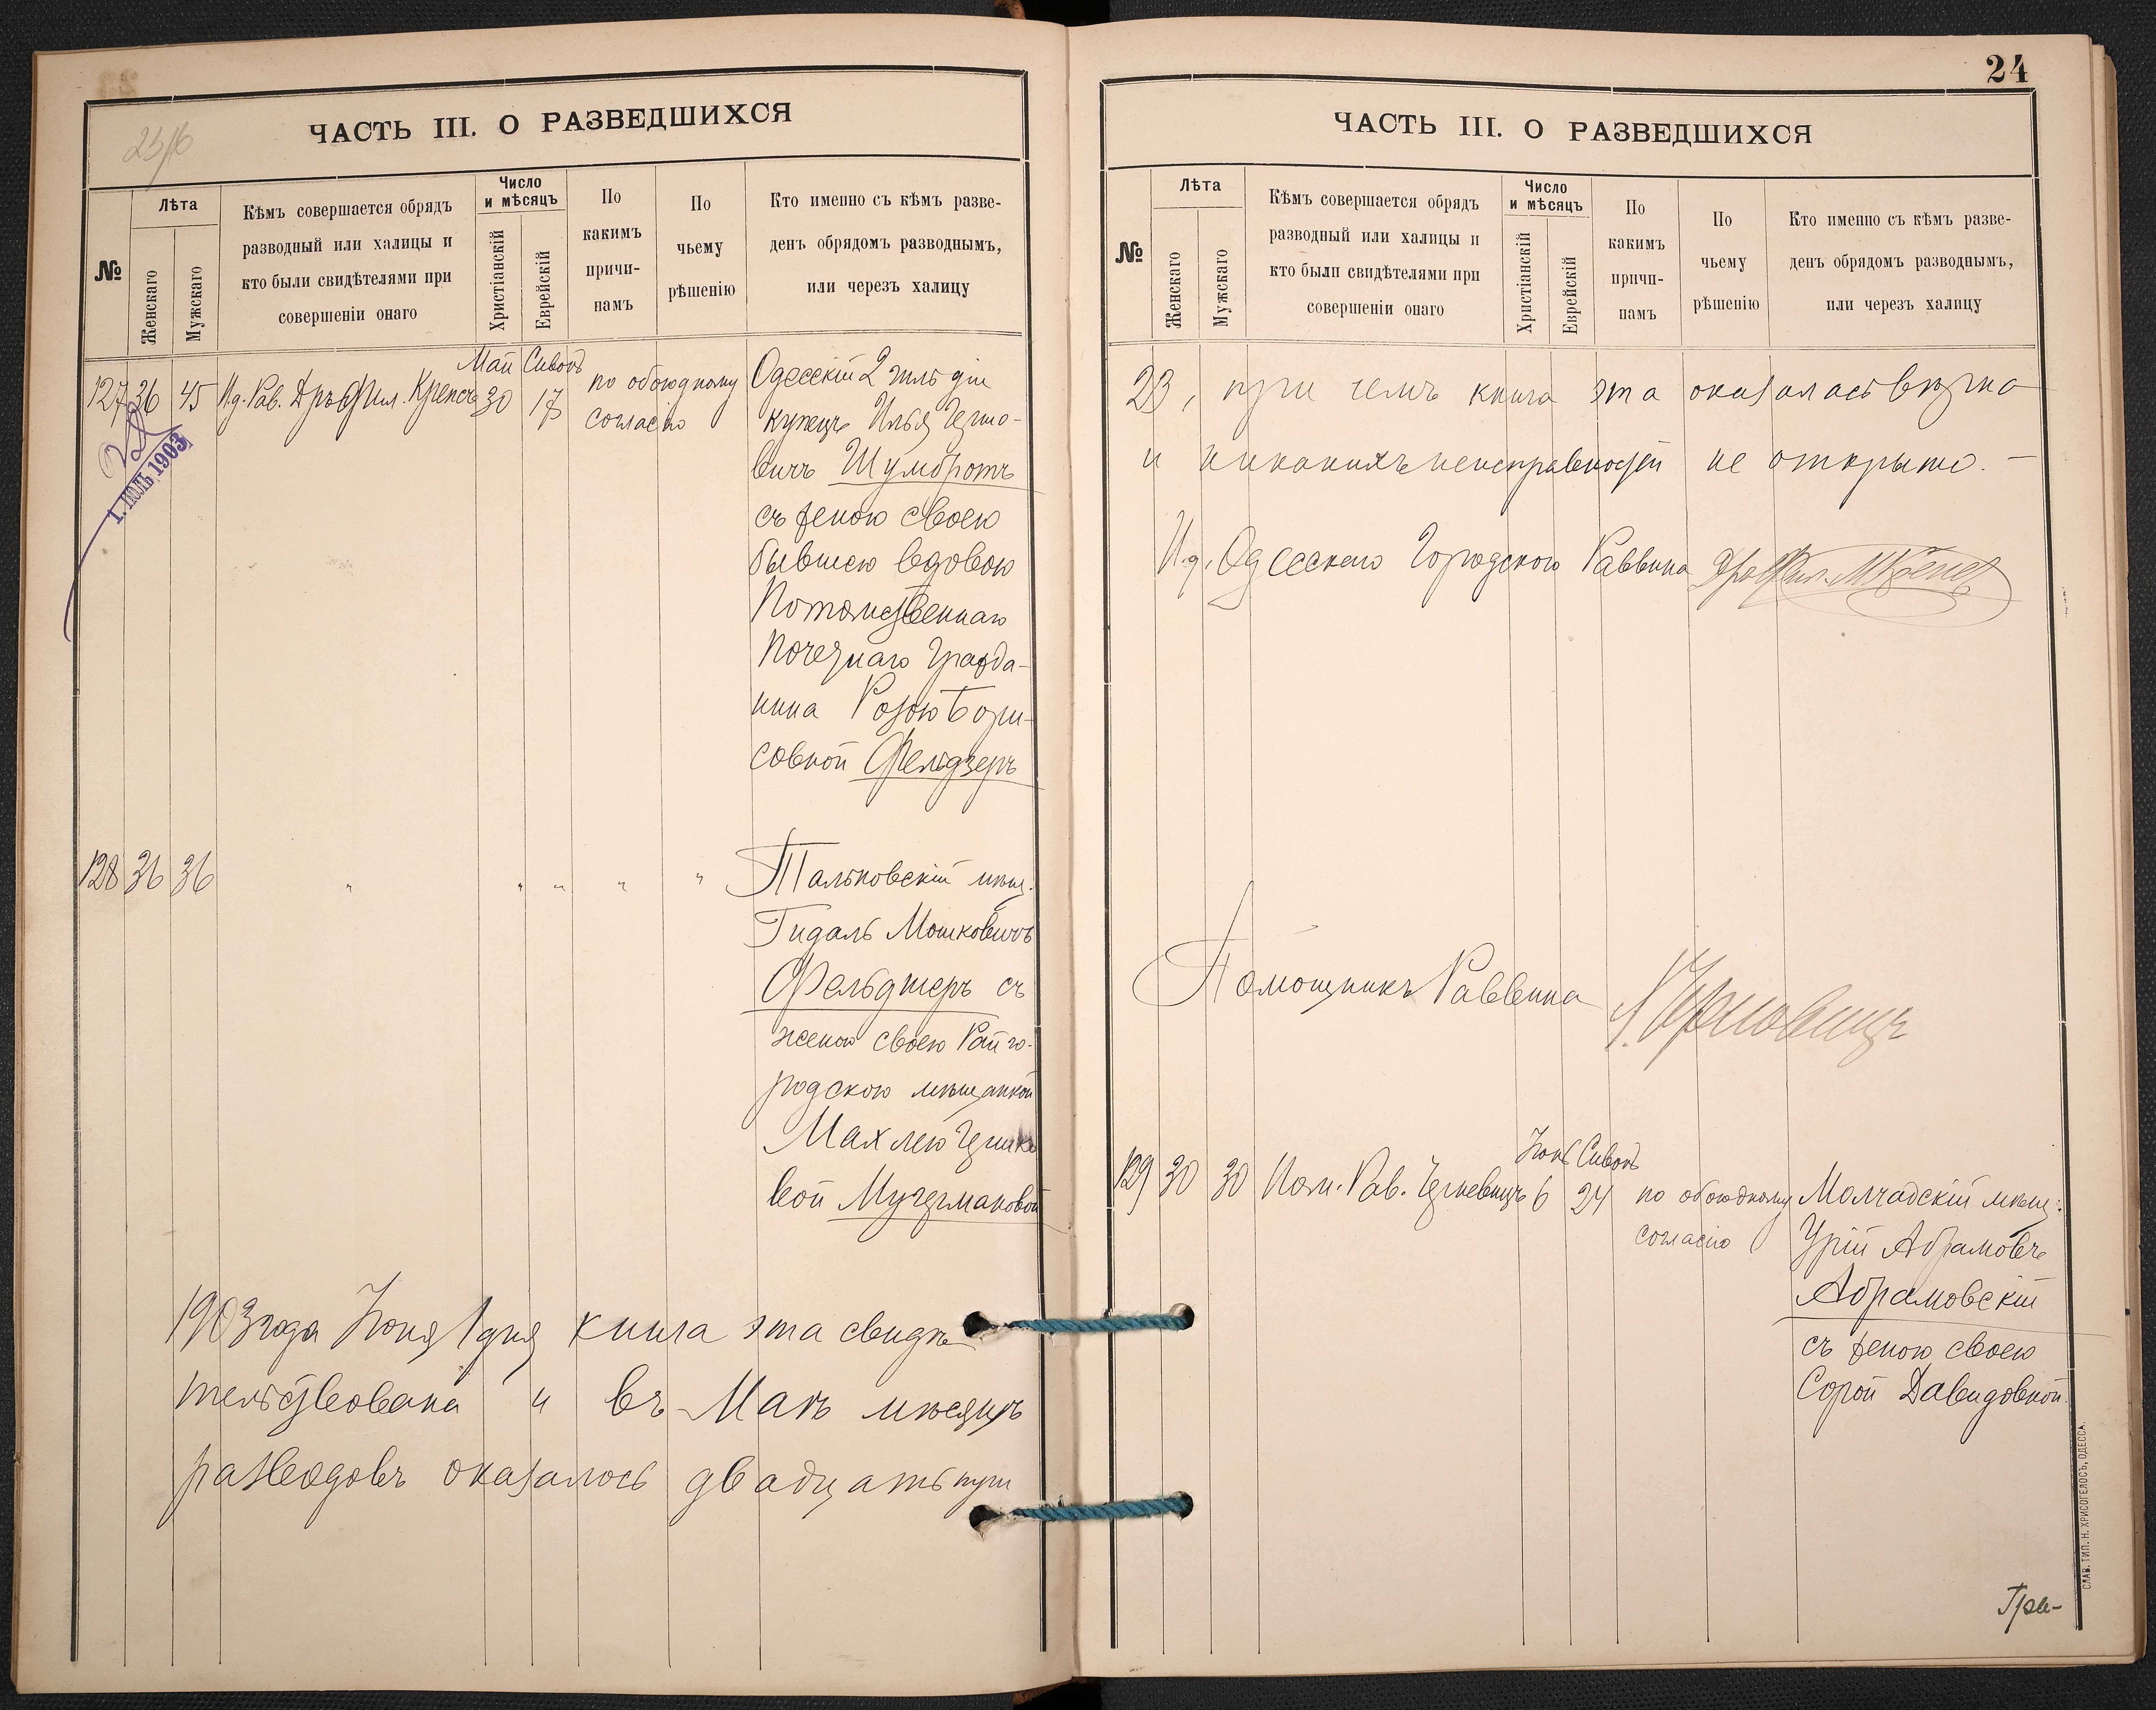 ЧАСТЬ III. О РАЗВЕДШИХСЯ
№
Лѣта
Женскаго
Мужскаго
Кѣмъ совершается обрядъ
разводный или халицы и
кто были свидѣтелями при
совершеніи онаго
Число
и мѣсяцъ
Христіанскій
Еврейскій
По
какимъ
причи-
намъ
По
чьему
рѣшенію
Кто именно съ кѣмъ разве-
денъ обрядомъ разводнымъ,
или черезъ халицу
127 36 45 И.д. Рав. Дръ Фил. Крепсъ
Май Сивонъ
30 17
по обоюдному
согласію
Одесскій 2 гильдіи
купецъ Илья
вичъ Шумбротъ
съ женою своею
бывшею вдовою
Потомственнаго
Почетнаго Гражда-
нина Розою Бори-
совной Фельдзеръ
1. ІЮЛЬ 1903
128 36 36 " " " " "
Тальновскій мѣщ.
Гидаль Мошковичъ
Фельдшеръ съ
женою своею Райго-
родскою мѣщанкой
Махлею
вой
1903 года Іюня 1 дня книга эта свидѣ-
тельствована и въ Маѣ мѣсяцѣ
разводовъ оказалось двадцать три
24
ЧАСТЬ III. О РАЗВЕДШИХСЯ
№
Лѣта
Женскаго
Мужскаго
Кѣмъ совершается обрядъ
разводный или халицы и
кто были свидѣтелями при
совершеніи онаго
Число
и мѣсяцъ
Христіанскій
Еврейскій
По
какимъ
причи-
намъ
По
чьему
рѣшенію
Кто именно съ кѣмъ разве-
денъ обрядомъ разводнымъ,
или черезъ халицу
23, при чемъ книга эта оказалась вѣрна
и никакихъ неисправностей не открыто. —
И.д. Одесскаго Городского Раввина Дръ Фил. М Крепсъ
Помощникъ Раввина
129 30 30 Пом. Рав.
Іюнь Сивонъ
6 24
по обоюдному
согласію
Молчадскій мѣщ:
Урій Абрамовъ
Абрамовскій
съ женою своею
Сорой Давидовной.
СЛАВ. ТИП. Н. ХРИСОГЕЛОСЪ, ОДЕССА.